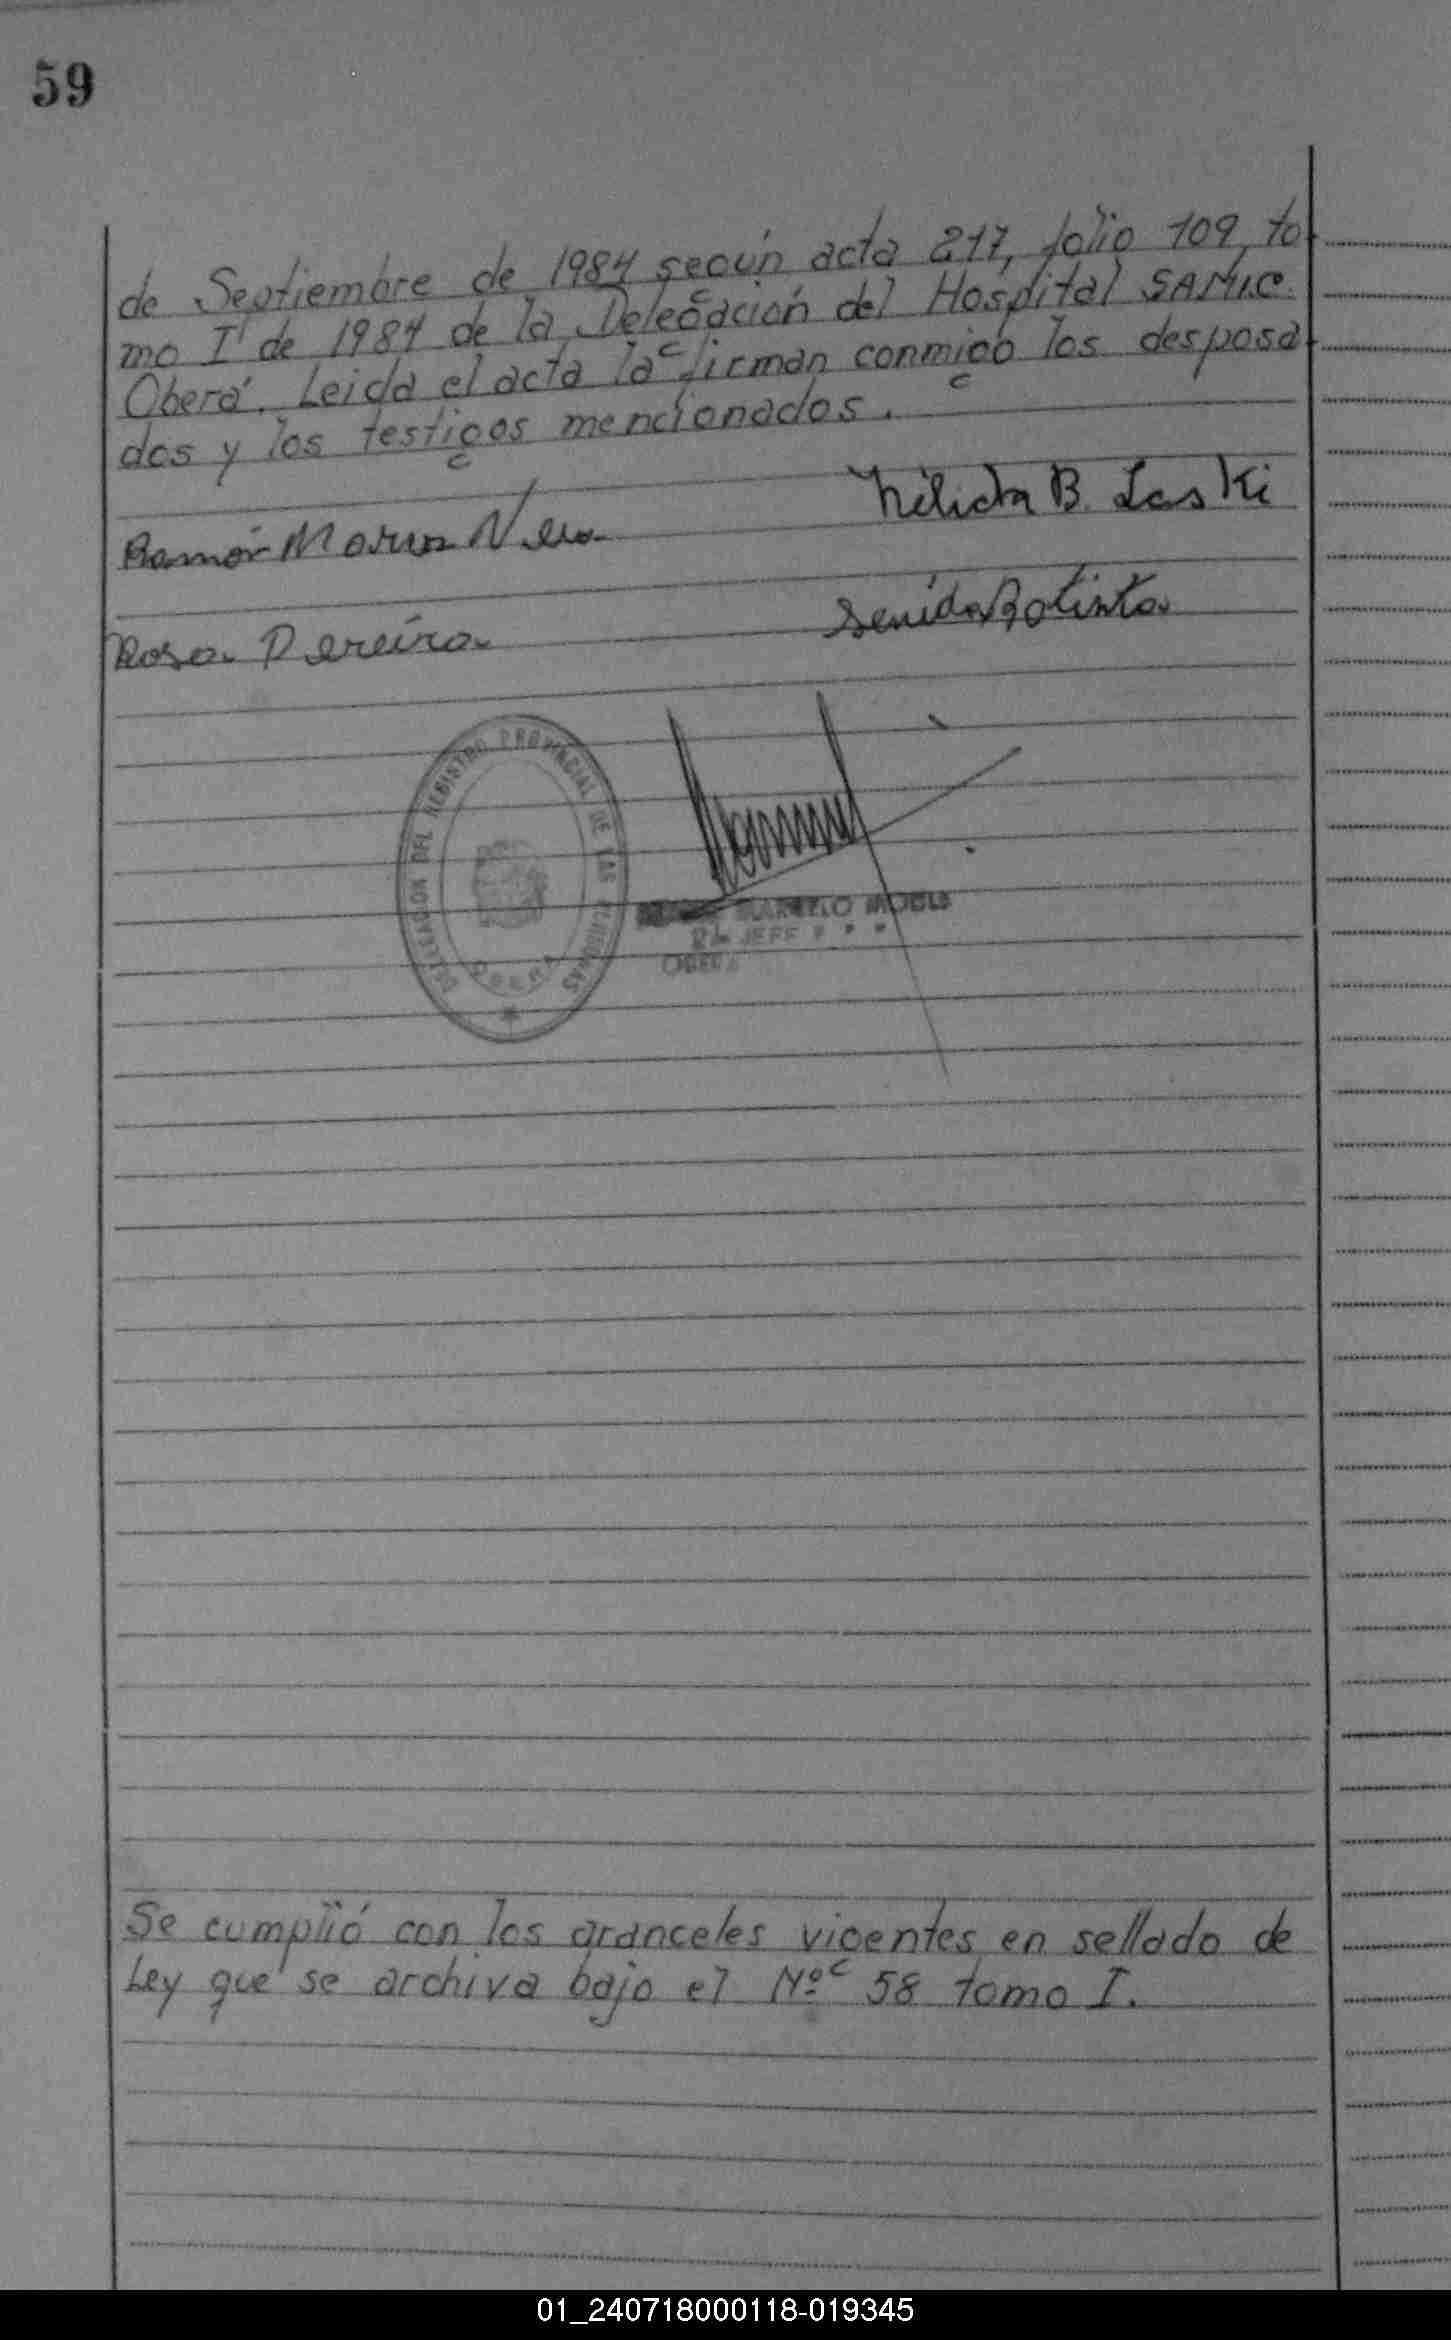 59
de Septiembre de 1984 según acta 217, folio 109, to-
mo I de 1984 de la Delegación del Hospital SAMIC
Oberá. Leida el acta la firman conmigo los desposa-
dos y los testigos mencionados.
Nélida B. Laski
Ramón
Rosa Pereira
DELEGACION DEL REGISTRO PROVINCIAL DE LAS PERSONAS
OBERA
MARCELO
JEFE
Se cumplió con los aranceles vigentes en sellado de
Ley que se archiva bajo el Nº 58 tomo I.
01_240718000118-019345